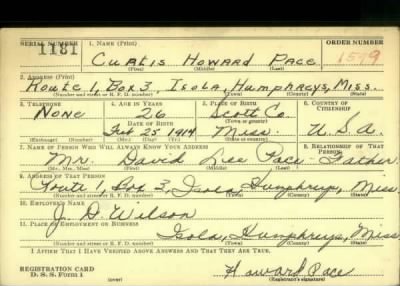 SERIAL NUMBER 1. NAME (Print) ORDER NUMBER
1181 Curtis Howard Pace 1579
(First) (Middle) (Last)
2. ADDRESS (Print)
Route 1, Box 3, Isola, Humphreys, Miss.
(Number and street or R. F. D. number) (Town) (County) (State)
3. TELEPHONE 4. AGE IN YEARS 5. PLACE OF BIRTH 6. COUNTRY OF CITIZENSHIP
None 26 Scott Co.
(Town or county)
Feb 25 1914 Miss. U.S.A.
(Exchange) (Number) (Mo.) (Day) (Yr.) (State or country)
7. NAME OF PERSON WHO WILL ALWAYS KNOW YOUR ADDRESS 8. RELATIONSHIP OF THAT PERSON
Mr. David Lee Pace - Father
(Mr., Mrs., Miss) (First) (Middle) (Last)
9. ADDRESS OF THAT PERSON
Route 1, Box 3, Isola, Humphreys, Miss
(Number and street or R. F. D. number) (Town) (County) (State)
10. EMPLOYER'S NAME
J. D. Wilson
11. PLACE OF EMPLOYMENT OR BUSINESS
Isola, Humphreys, Miss
(Number and street or R. F. D. number) (Town) (County) (State)
I AFFIRM THAT I HAVE VERIFIED ABOVE ANSWERS AND THAT THEY ARE TRUE.
REGISTRATION CARD Howard Pace
D. S. S. Form 1 (over) (Registrant's signature)